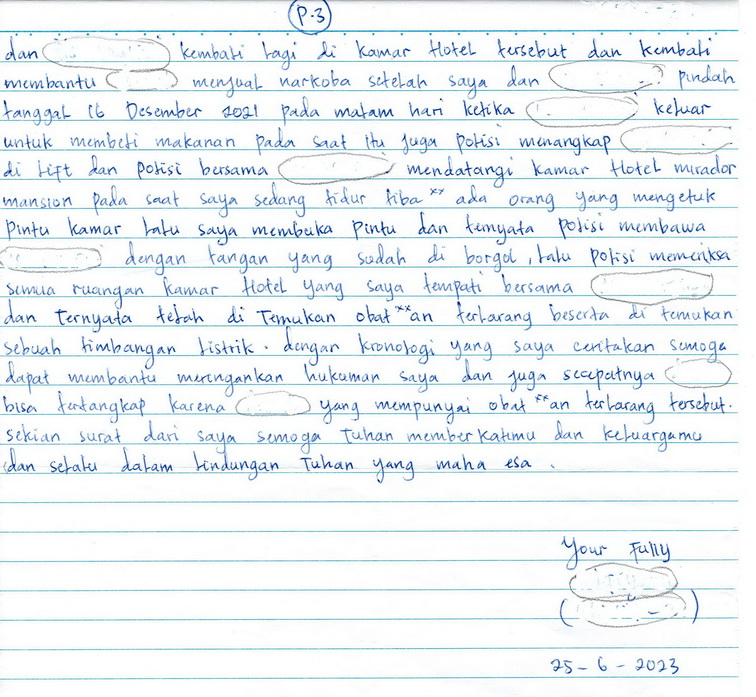 P.3
dan kembali lagi di kamar Hotel tersebut dan kembali
membantu menjual narkoba setelah saya dan pindah
tanggal 16 Desember 2021 pada malam hari ketika keluar
untuk membeli makanan pada saat itu juga polisi menangkap
di Lift dan polisi bersama mendatangi kamar Hotel mirador
mansion pada saat saya sedang tidur tiba ×× ada orang yang mengetuk
pintu kamar lalu saya membuka pintu dan ternyata polisi membawa
dengan tangan yang sudah di borgol, lalu polisi memeriksa
semua ruangan kamar Hotel yang saya tempati bersama
dan Ternyata telah di Temukan obat ××an terlarang beserta di temukan
sebuah timbangan listrik. dengan kronologi yang saya ceritakan semoga
dapat membantu meringankan hukuman saya dan juga secepatnya
bisa tertangkap karena yang mempunyai obat ××an terlarang tersebut.
sekian surat dari saya semoga Tuhan memberkatimu dan keluargamu
dan selalu dalam Lindungan Tuhan yang maha esa.
Your Fully
( )
25-6-2023